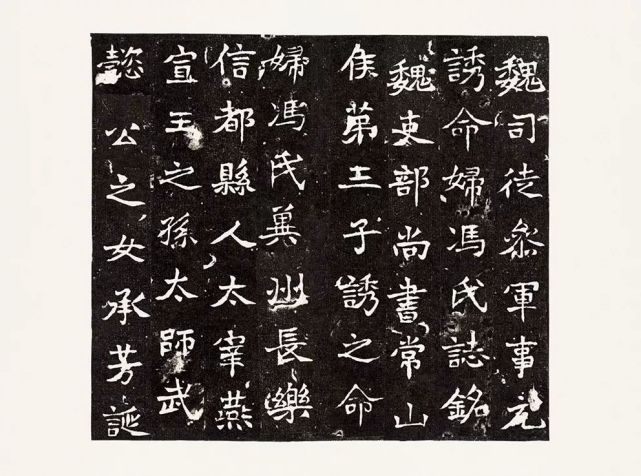 魏司徒叅軍事元
誘命婦馮氏誌銘
魏吏部尚書常山
侯苐三子誘之命
婦馮氏冀州長樂
信都縣人太宰燕
宣王之孫太師武
懿公之女承芳誕